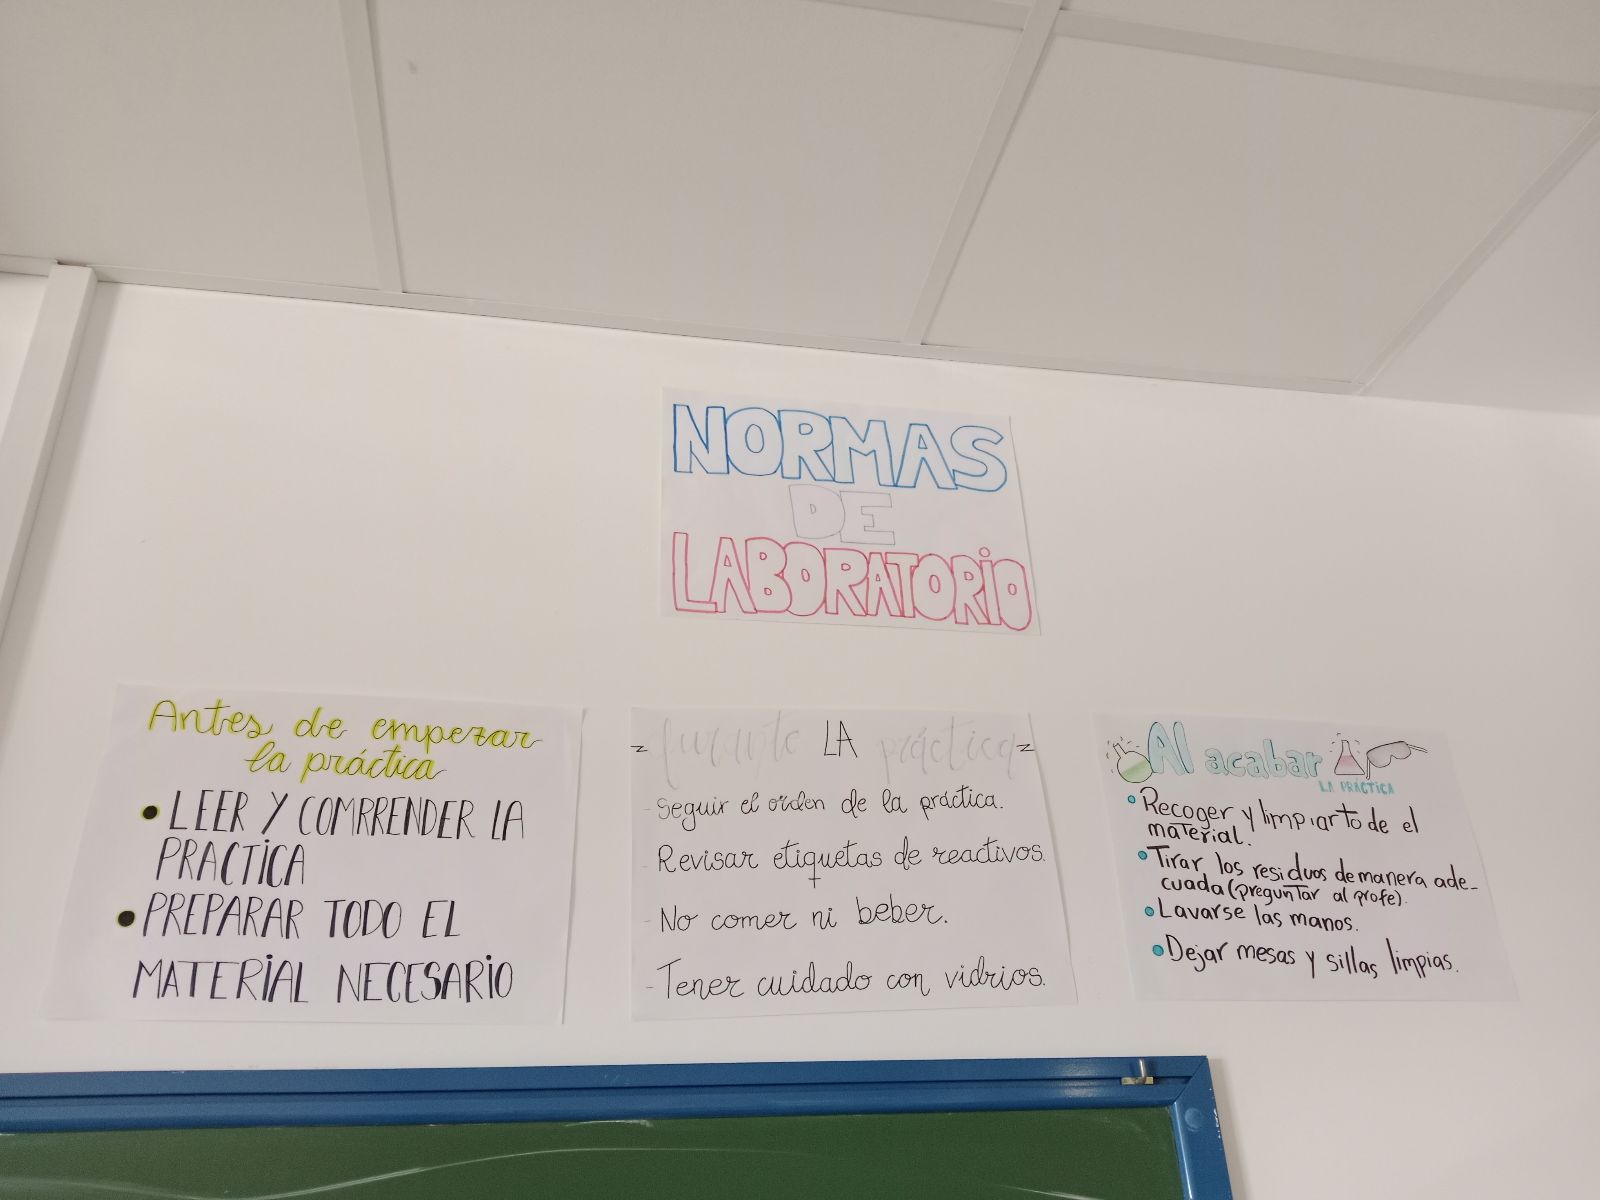 NORMAS
DE
LABORATORIO
Antes de empezar
la práctica
• LEER Y COMRRENDER LA
PRACTICA
• PREPARAR TODO EL
MATERIAL NECESARIO
durante LA práctica
- Seguir el orden de la práctica.
- Revisar etiquetas de reactivos.
- No comer ni beber.
- Tener cuidado con vidrios.
Al acabar
LA PRÁCTICA
• Recoger y limpiar todo el
material.
• Tirar los residuos de manera ade-
cuada (preguntar al profe).
• Lavarse las manos.
• Dejar mesas y sillas limpias.